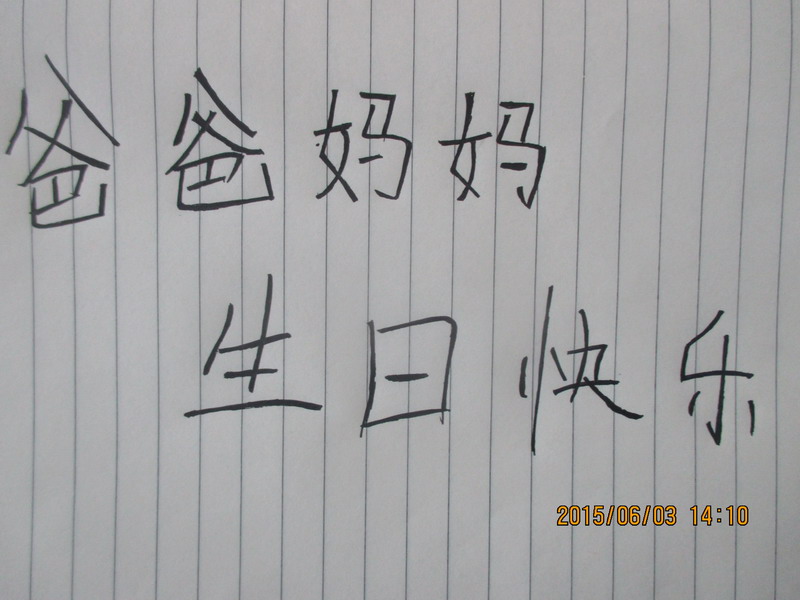 爸爸妈妈
生日快乐
2015/06/03 14:10